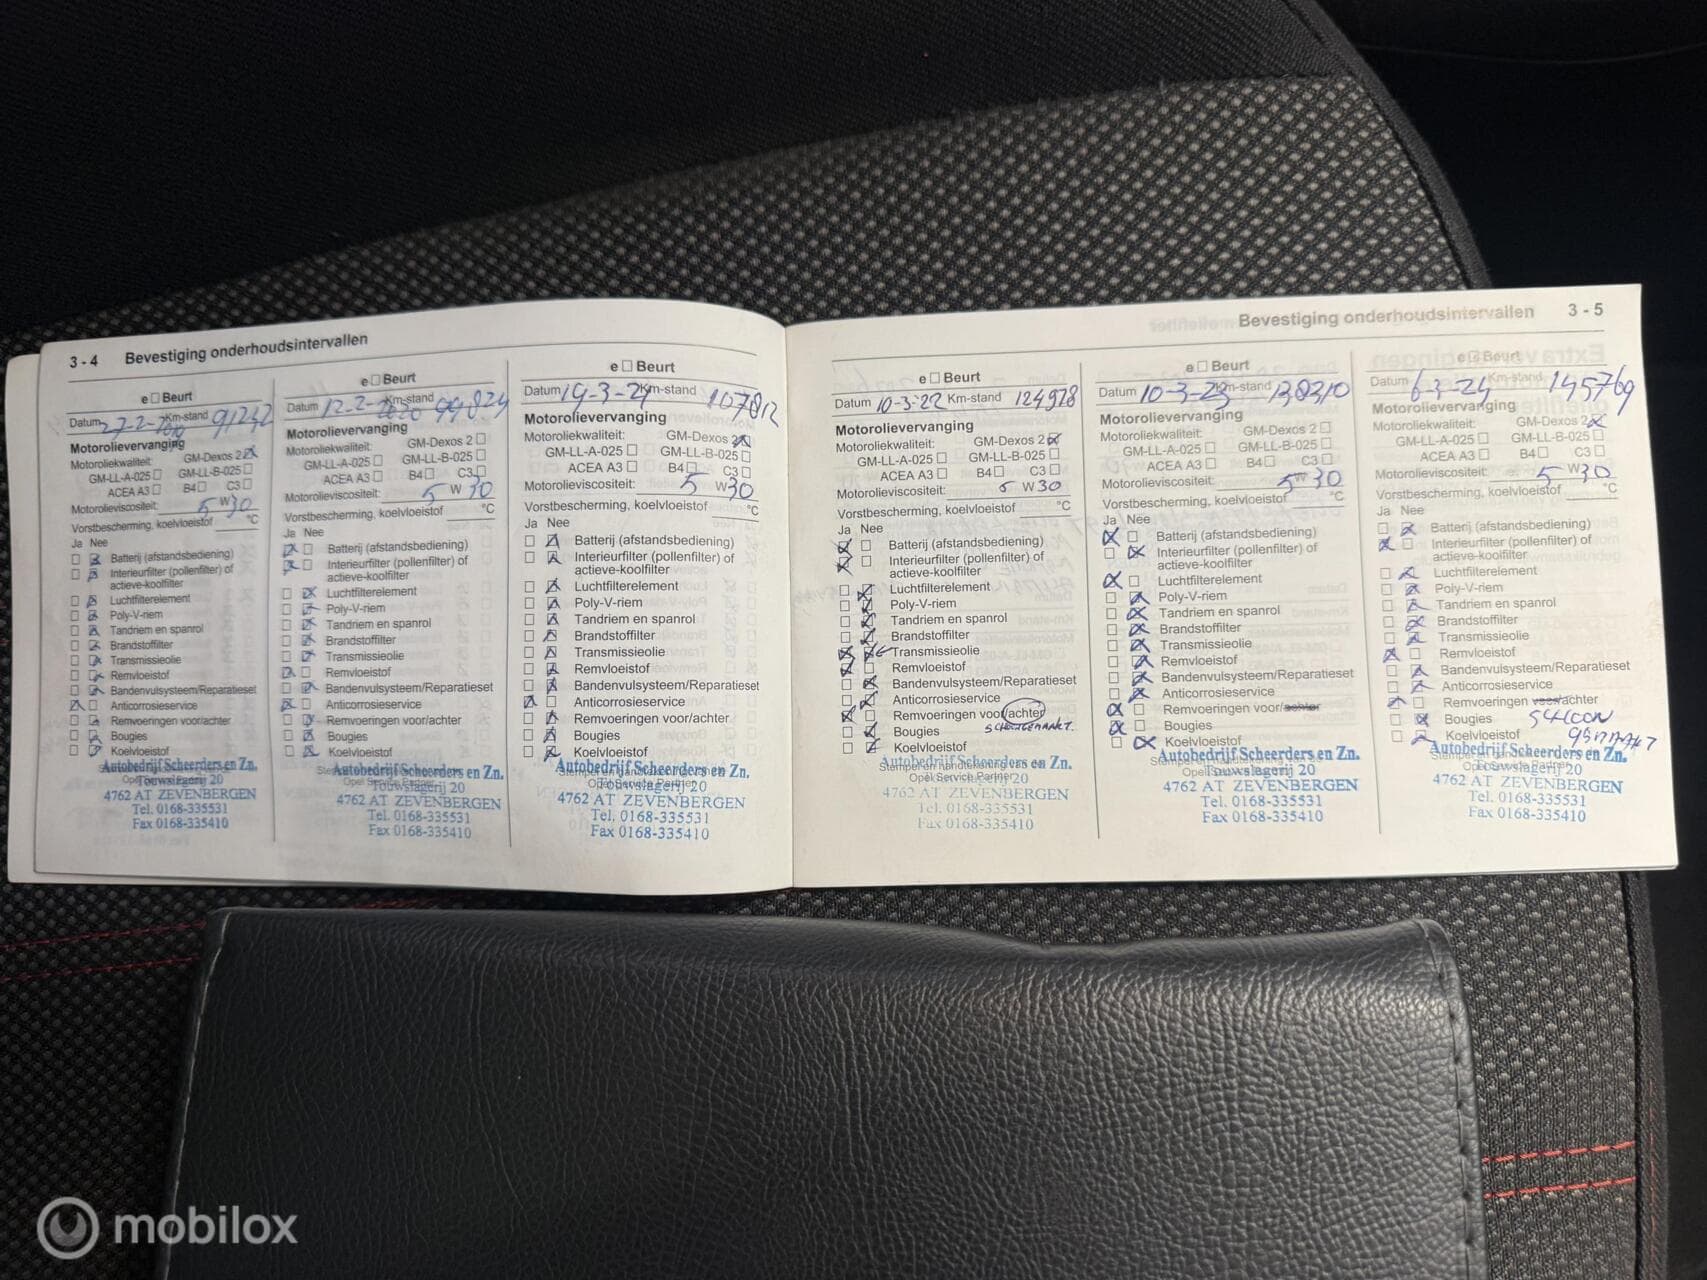 3 - 4 Bevestiging onderhoudsintervallen
e □ Beurt
Datum 27-2- Km-stand 91242
Motorolievervanging
Motoroliekwaliteit: GM-Dexos 2 ☒
GM-LL-A-025 □ GM-LL-B-025 □
ACEA A3 □ B4 □ C3 □
Motorolieviscositeit: 5 W 30
Vorstbescherming, koelvloeistof °C
Ja Nee
□ ☒ Batterij (afstandsbediening)
□ ☒ Interieurfilter (pollenfilter) of
actieve-koolfilter
□ ☒ Luchtfilterelement
□ ☒ Poly-V-riem
□ ☒ Tandriem en spanrol
□ ☒ Brandstoffilter
□ ☒ Transmissieolie
□ ☒ Remvloeistof
□ ☒ Bandenvulsysteem/Reparatieset
☒ □ Anticorrosieservice
□ ☒ Remvoeringen voor/achter
□ ☒ Bougies
□ ☒ Koelvloeistof
Autobedrijf Scheerders en Zn.
Touwslagerij 20
4762 AT ZEVENBERGEN
Tel. 0168-335531
Fax 0168-335410
e □ Beurt
Datum 12-2-2020 Km-stand 99824
Motorolievervanging
Motoroliekwaliteit: GM-Dexos 2 □
GM-LL-A-025 □ GM-LL-B-025 □
ACEA A3 □ B4 □ C3 □
Motorolieviscositeit: 5 W 30
Vorstbescherming, koelvloeistof °C
Ja Nee
☒ □ Batterij (afstandsbediening)
☒ □ Interieurfilter (pollenfilter) of
actieve-koolfilter
□ ☒ Luchtfilterelement
□ ☒ Poly-V-riem
□ ☒ Tandriem en spanrol
□ ☒ Brandstoffilter
□ ☒ Transmissieolie
☒ □ Remvloeistof
□ ☒ Bandenvulsysteem/Reparatieset
☒ □ Anticorrosieservice
□ ☒ Remvoeringen voor/achter
□ ☒ Bougies
□ ☒ Koelvloeistof
Autobedrijf Scheerders en Zn.
Touwslagerij 20
4762 AT ZEVENBERGEN
Tel. 0168-335531
Fax 0168-335410
e □ Beurt
Datum 19-3-21 Km-stand 107812
Motorolievervanging
Motoroliekwaliteit: GM-Dexos 2 ☒
GM-LL-A-025 □ GM-LL-B-025 □
ACEA A3 □ B4 □ C3 □
Motorolieviscositeit: 5 W 30
Vorstbescherming, koelvloeistof °C
Ja Nee
□ ☒ Batterij (afstandsbediening)
□ ☒ Interieurfilter (pollenfilter) of
actieve-koolfilter
□ ☒ Luchtfilterelement
□ ☒ Poly-V-riem
□ ☒ Tandriem en spanrol
□ ☒ Brandstoffilter
□ ☒ Transmissieolie
□ ☒ Remvloeistof
□ ☒ Bandenvulsysteem/Reparatieset
☒ □ Anticorrosieservice
□ ☒ Remvoeringen voor/achter
□ ☒ Bougies
□ ☒ Koelvloeistof
Autobedrijf Scheerders en Zn.
Opel Service Partner
Touwslagerij 20
4762 AT ZEVENBERGEN
Tel. 0168-335531
Fax 0168-335410
Bevestiging onderhoudsintervallen 3 - 5
e □ Beurt
Datum 10-3-22 Km-stand 124978
Motorolievervanging
Motoroliekwaliteit: GM-Dexos 2 ☒
GM-LL-A-025 □ GM-LL-B-025 □
ACEA A3 □ B4 □ C3 □
Motorolieviscositeit: 5 W 30
Vorstbescherming, koelvloeistof °C
Ja Nee
☒ □ Batterij (afstandsbediening)
☒ □ Interieurfilter (pollenfilter) of
actieve-koolfilter
□ ☒ Luchtfilterelement
□ ☒ Poly-V-riem
□ ☒ Tandriem en spanrol
□ ☒ Brandstoffilter
☒ ☒ Transmissieolie
☒ □ Remvloeistof
□ ☒ Bandenvulsysteem/Reparatieset
□ ☒ Anticorrosieservice
☒ □ Remvoeringen voor/achter
□ ☒ Bougies
□ ☒ Koelvloeistof
Autobedrijf Scheerders en Zn.
Opel Service Partner
4762 AT ZEVENBERGEN
Tel. 0168-335531
Fax 0168-335410
e □ Beurt
Datum 10-3-23 Km-stand 138310
Motorolievervanging
Motoroliekwaliteit: GM-Dexos 2 □
GM-LL-A-025 □ GM-LL-B-025 □
ACEA A3 □ B4 □ C3 □
Motorolieviscositeit: 5 W 30
Vorstbescherming, koelvloeistof °C
Ja Nee
☒ □ Batterij (afstandsbediening)
□ ☒ Interieurfilter (pollenfilter) of
actieve-koolfilter
☒ □ Luchtfilterelement
□ ☒ Poly-V-riem
□ ☒ Tandriem en spanrol
□ ☒ Brandstoffilter
□ ☒ Transmissieolie
□ ☒ Remvloeistof
□ ☒ Bandenvulsysteem/Reparatieset
□ ☒ Anticorrosieservice
☒ □ Remvoeringen voor/achter
☒ □ Bougies
□ ☒ Koelvloeistof
Autobedrijf Scheerders en Zn.
Touwslagerij 20
4762 AT ZEVENBERGEN
Tel. 0168-335531
Fax 0168-335410
e □ Beurt
Datum 6-3-24 Km-stand 145769
Motorolievervanging
Motoroliekwaliteit: GM-Dexos 2 ☒
GM-LL-A-025 □ GM-LL-B-025 □
ACEA A3 □ B4 □ C3 □
Motorolieviscositeit: 5 W 30
Vorstbescherming, koelvloeistof °C
Ja Nee
□ ☒ Batterij (afstandsbediening)
☒ □ Interieurfilter (pollenfilter) of
actieve-koolfilter
□ ☒ Luchtfilterelement
□ ☒ Poly-V-riem
□ ☒ Tandriem en spanrol
□ ☒ Brandstoffilter
□ ☒ Transmissieolie
☒ □ Remvloeistof
□ ☒ Bandenvulsysteem/Reparatieset
□ ☒ Anticorrosieservice
☒ □ Remvoeringen voor/achter
□ ☒ Bougies
□ ☒ Koelvloeistof
Autobedrijf Scheerders en Zn.
Touwslagerij 20
4762 AT ZEVENBERGEN
Tel. 0168-335531
Fax 0168-335410
mobilox